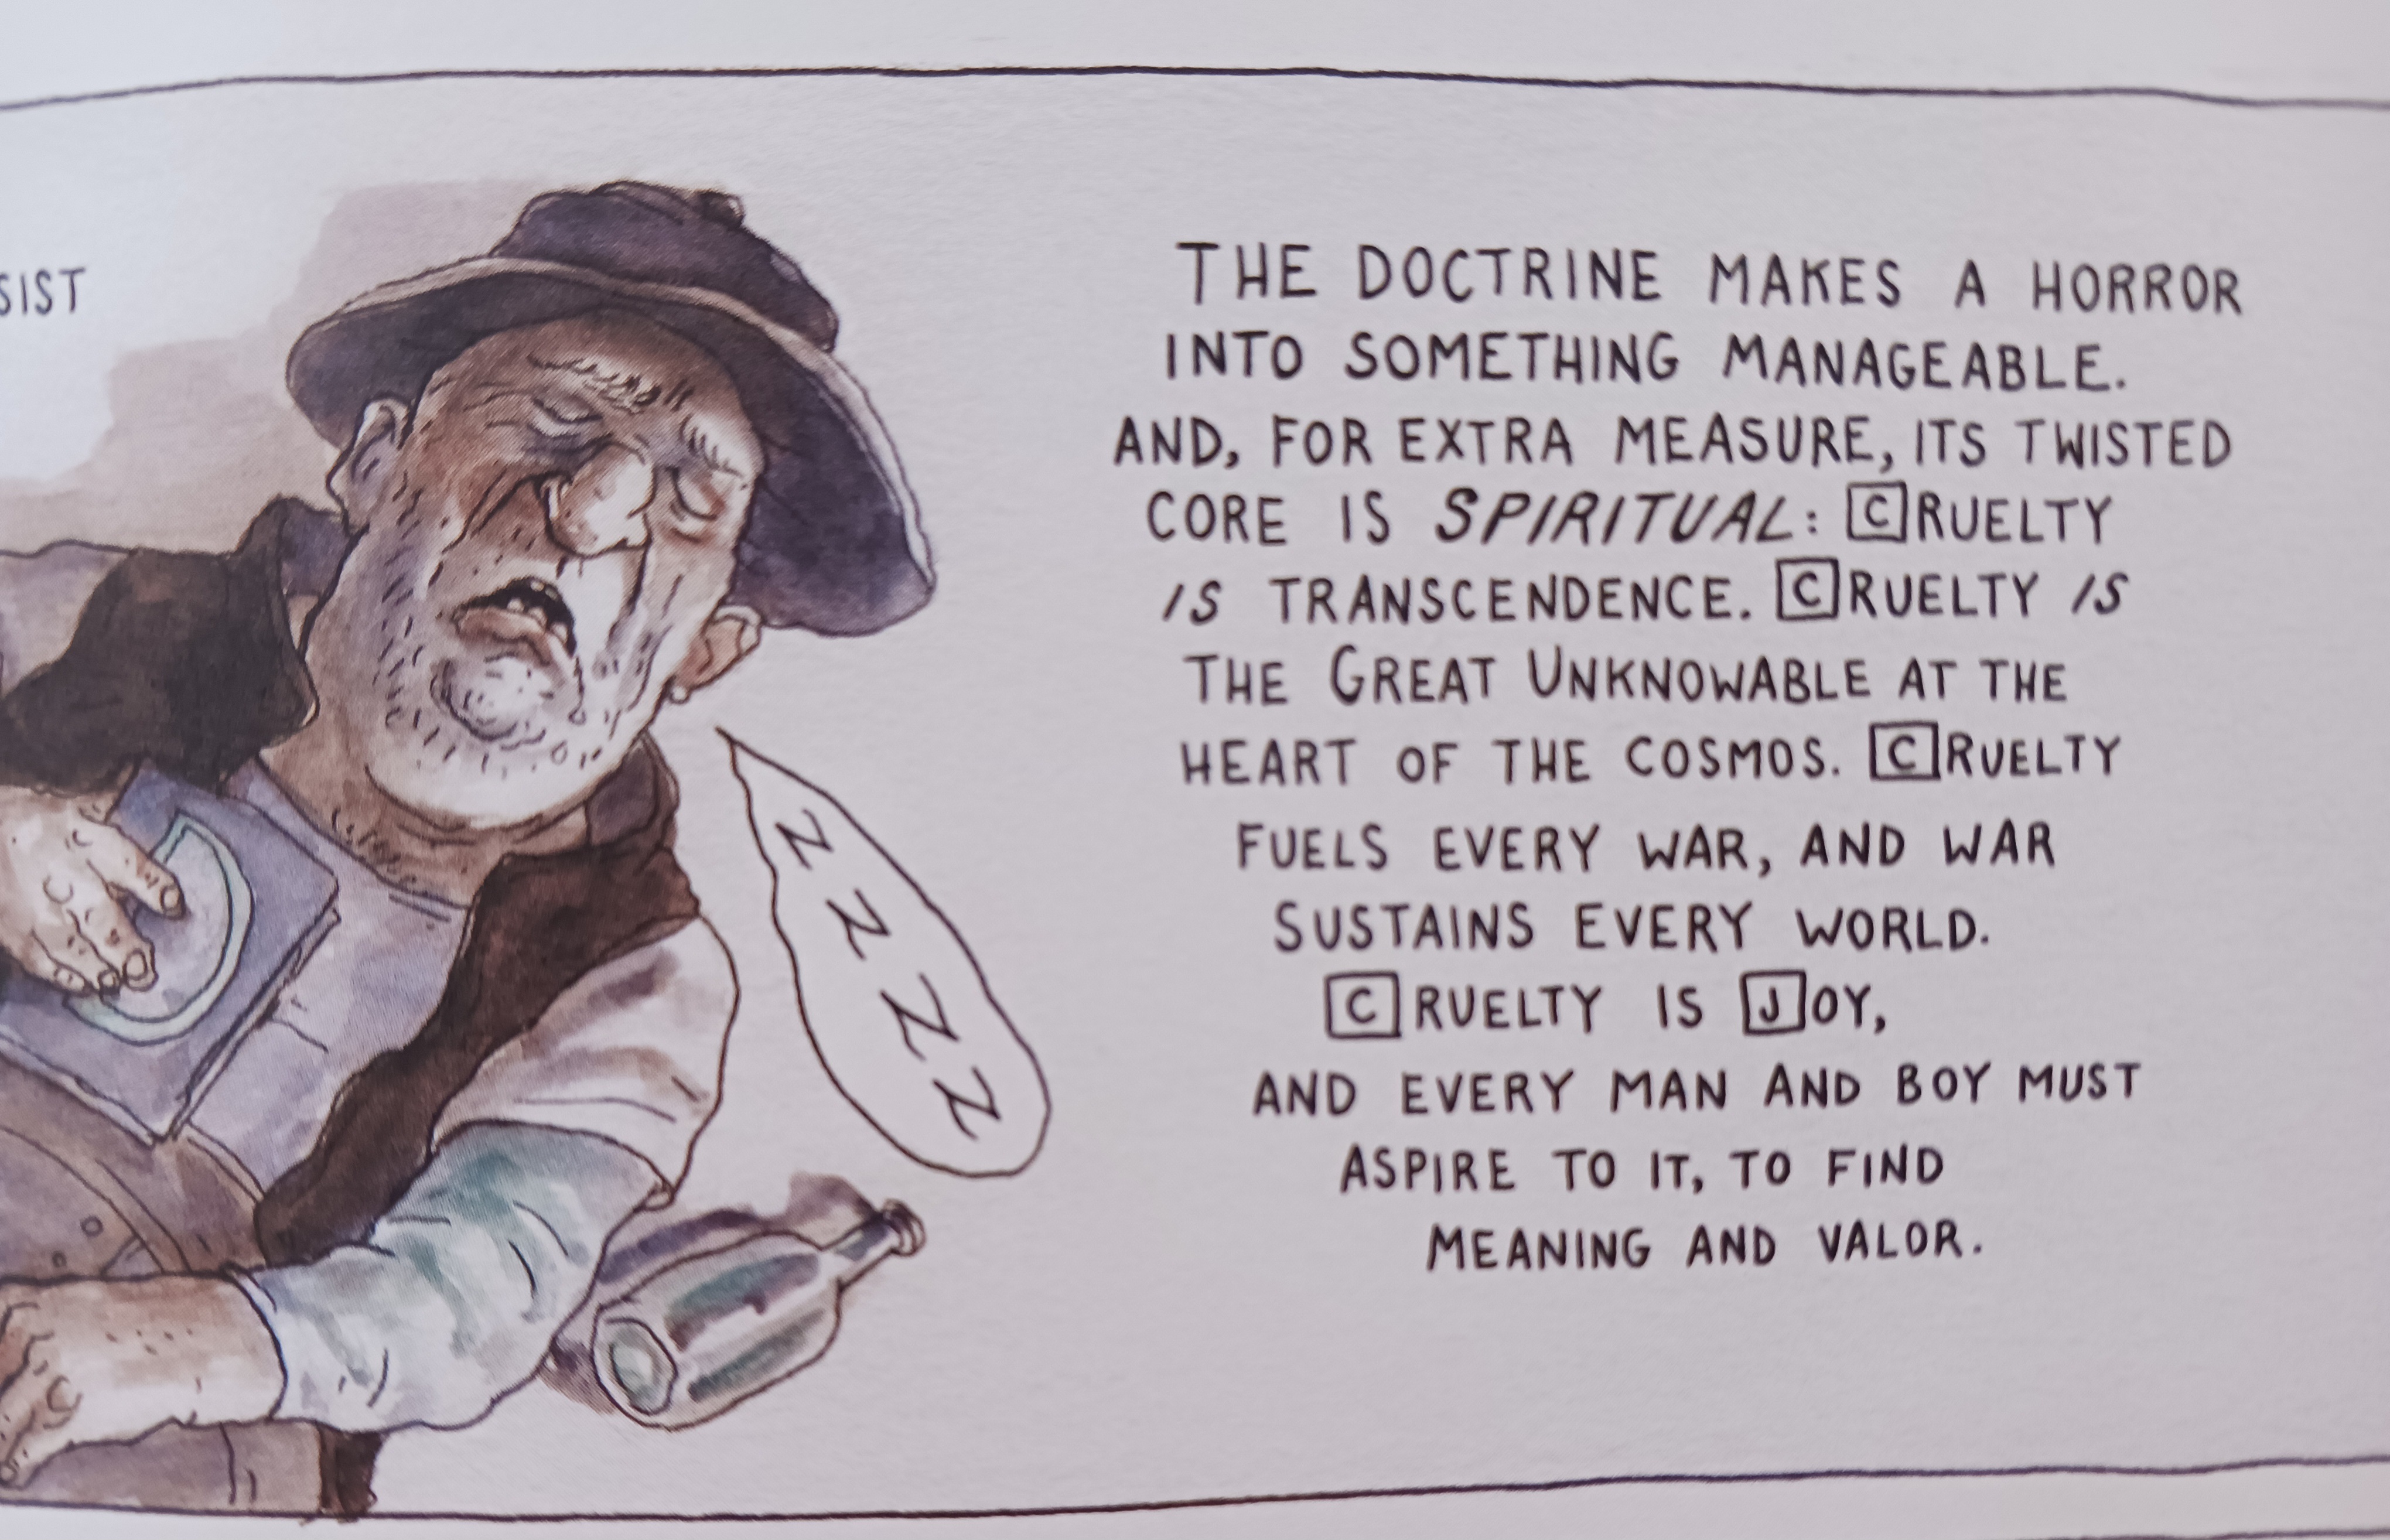 SIST
THE DOCTRINE MAKES A HORROR
INTO SOMETHING MANAGEABLE.
AND, FOR EXTRA MEASURE, ITS TWISTED
CORE IS SPIRITUAL: CRUELTY
IS TRANSCENDENCE. CRUELTY IS
THE GREAT UNKNOWABLE AT THE
HEART OF THE COSMOS. CRUELTY
FUELS EVERY WAR, AND WAR
SUSTAINS EVERY WORLD.
CRUELTY IS JOY,
AND EVERY MAN AND BOY MUST
ASPIRE TO IT, TO FIND
MEANING AND VALOR.
Z Z Z Z